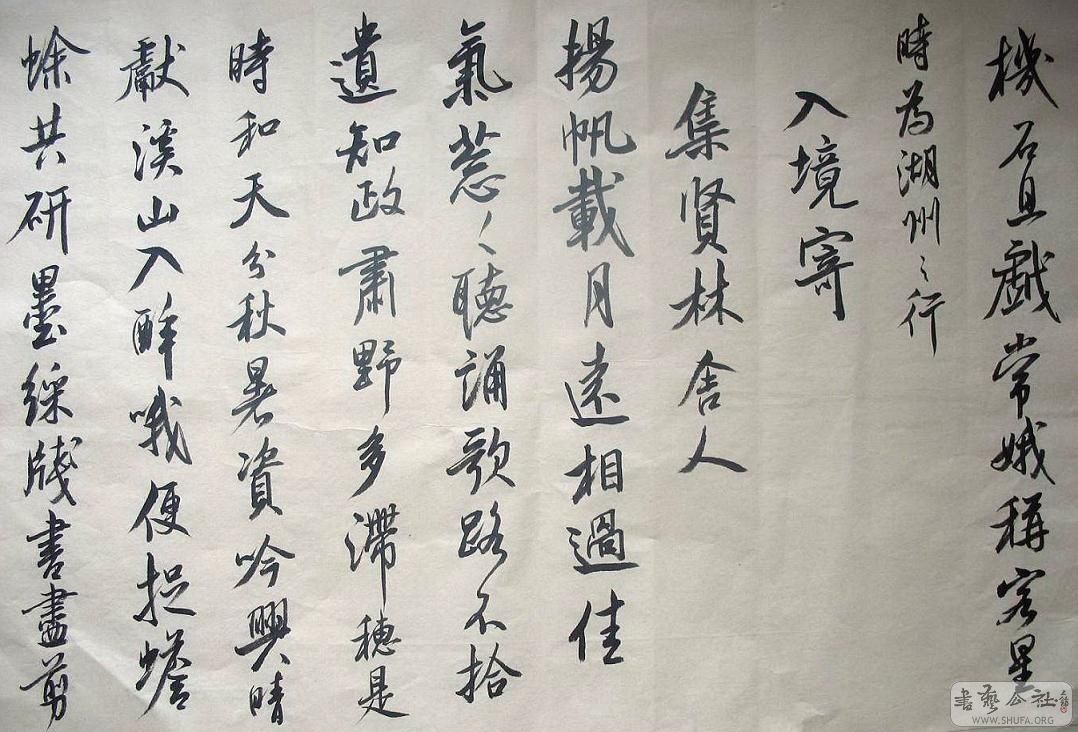 機石且戲常娥稱客星
時為湖州〻行
入境寄
集賢林舍人
揚帆載月遠相過佳
氣葱〻聽誦歌路不拾
遺知政肅野多滯穗是
時和天分秋暑資吟興晴
獻溪山入醉哦便捉蟾
蜍共研墨綵牋書盡剪
書藝公社
WWW.SHUFA.ORG